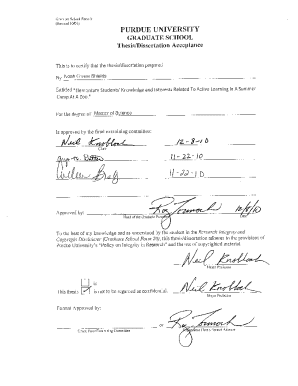 Graduate School Form 9
PURDUE UNIVERSITY
GRADUATE SCHOOL
Thesis/Dissertation Acceptance
This is to certify that the thesis/dissertation prepared
By
Entitled Students' Knowledge and Interests Related To Active Learning In A Summer
Camp At A Zoo
For the degree of Master of Science
Is approved by the final examining committee:
Neil Knobloch 12-8-10
Chair
11-22-10
11-22-10
Approved by:
Head of the Graduate Program
To the best of my knowledge and as understood by the student in the Research Integrity and
Copyright Disclaimer (Graduate School Form 20), this thesis/dissertation adheres to the provisions of
Purdue University's "Policy on Integrity in Research" and the use of copyrighted material.
Neil Knobloch
Major Professor
is
This thesis is not to be regarded as confidential.
Neil Knobloch
Major Professor
Format Approved by:
or
Chair, Final Examining Committee